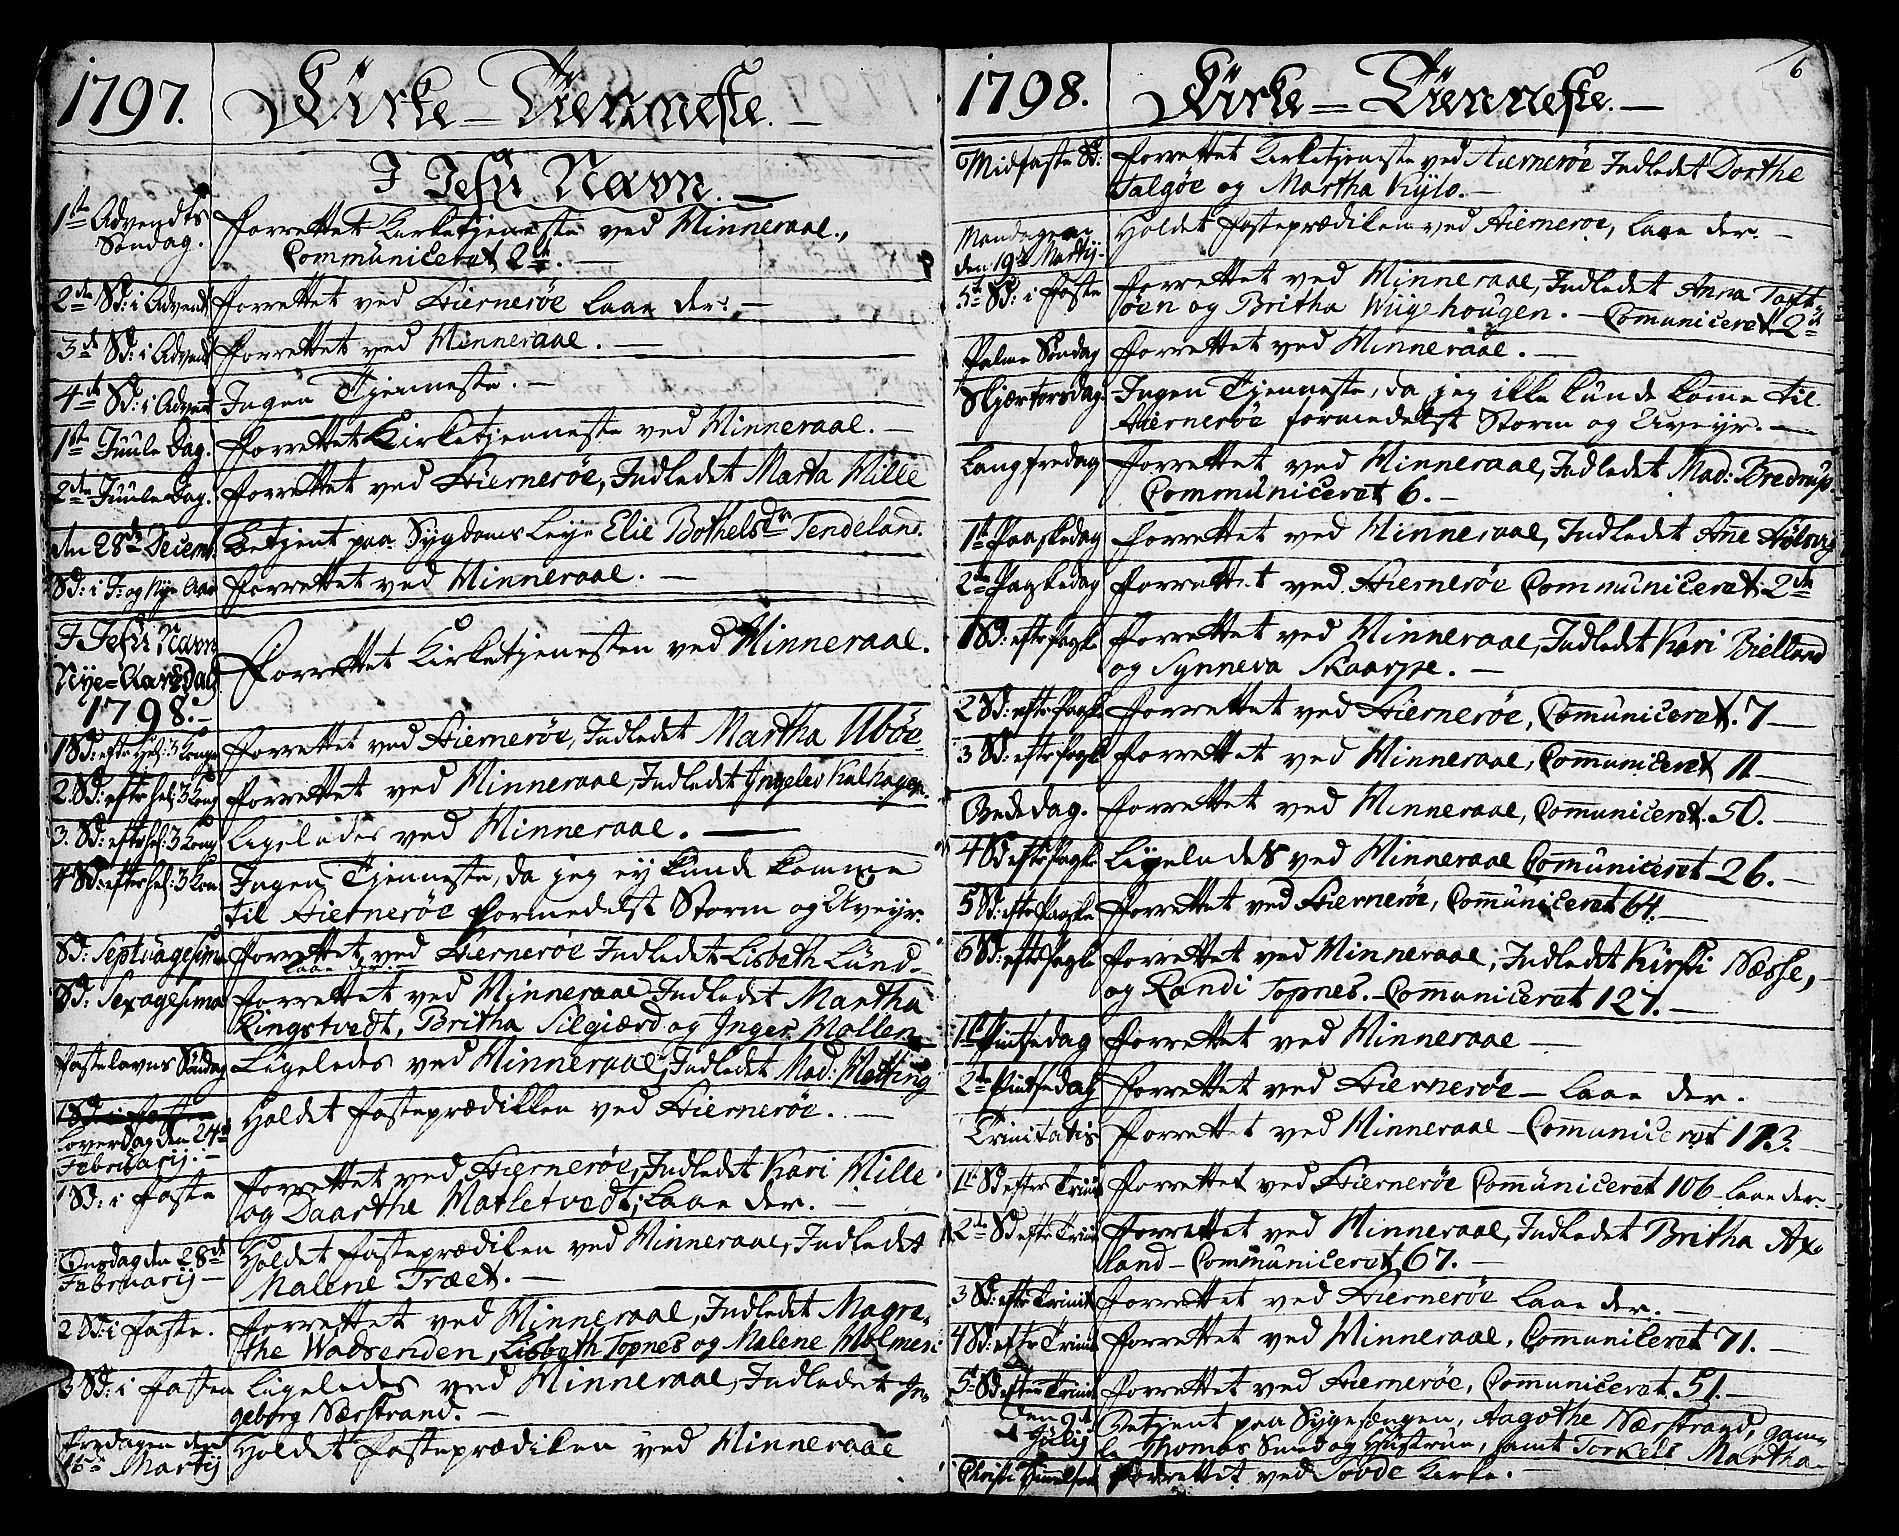 1797. Kirke-Tienneste.
I Jesu Navn.
1ste Advendts Søndag. forrettet Kirketjeneste ved Winneraae.,
Communiceret 2de. —
2den Sd: i Advent forrettet ved Hiernerøe laae der. —
3die Sd: i Advent forrettet ved Winneraae. —
4de Sd: i Advent Ingen Tjenneste. —
1ste Juule Dag. forrettet Kirketjenneste ved Winneraae. —
2den Juule Dag. forrettet ved Hiernerøe, Indledet Marta Wille
den 28de Decemb. betjent paa Sygdoms Leije Elie Bothels Dtr Tendeland.
Sd: i J: og Nye Aar forrettet ved Winneraae. —
I Jesu Navn
Nye-Aars Dag forrettet Kirketjenesten ved Winneraae.
1798. —
1 Sd: efter Hel: 3 Konger forrettet ved Hiernerøe, Indledet Martha Ubøe
2. Sd: efter Hel: 3 Kong forrettet ved Winneraae, Indledet Ingelev Kalhagen.
3. Sd: efter Hel: 3 Kong Ligeledes ved Winneraae. —
4 Sd: efter Hel: 3 Kon. Ingen Tjenneste, da jeg ey kunde komme
til Hiernerøe formedelst Storm og Uveyr.
Sd: Septuagesima forrettet ved Hiernerøe Indledet Lisbeth Lund.
laae der.
Sd: Sexagesima forrettet ved Winneraae Indledet Martha
Ringstvedt, Britha Silgiærd og Inger Mollen
Fastelavns Søndag Ligeledes ved Winneraae, Indledet Mad: Metting
1 Sd: i Faste Holdet fasteprædikken ved Hiernerøe. —
Løverdag den 24de
Februarij. —
1 Sd: i Faste forrettet ved Hiernerøe, Indledet Kari Wille
og Daarthe Matletvedt, laae der. —
Onsdag den 28de Holdet fasteprædiken ved Winneraae, Indledet
Februarij — Malene Træet. —
2 Sd: i Faste. forrettet ved Winneraae, Indledet Magre-
the Wadsenden, Lisbeth Topnes og Malene
3 Sd: i Fasten Ligeledes ved Winneraae, Indledet In-
geborg Nærstrand. —
Fredagen den Holdet fasteprædiken ved Winneraae
16de Martij
1798. Kirke=Tienneste. —
6
Midfaste Sd: forrettet Kirketjeneste ved Hiernerøe Indledet Dorthe
Talgøe og Martha Kylo. —
Mandagen Holdet fasteprædiken ved Hiernerøe, laae der. —
den 19de Martij
5te Sd: i Faste forrettet ved Winneraae, Indledet Anna Toft-
øen og Britha Wiigehougen. — Comuniceret 2de
Palme Søndag forrettet ved Winneraae. —
Skjærtorsdag Ingen Tjenneste, da jeg ikke kunde kome til
Hiernerøe formedelst Storm og Uveyr. —
Langfredag forrettet ved Winneraae, Indledet Mad: Bredrup
Communiceret 6. —
1ste Paaskedag forrettet ved Winneraae, Indledet Ane
2den Paaskedag forrettet ved Hiernerøe Communiceret 2de
1 Sd: efter Paaske forrettet ved Winneraae, Indledet Kari Bielland
og Synneva Skaarpe. —
2 Sd: efter Paaske forrettet ved Hiernerøe, Comuniceret. 7 —
3 Sd: efter Paaske forrettet ved Winneraae, Comuniceret 11 —
Bededag. forrettet ved Winneraae, Comuniceret. 50. —
4 Sd efter Paaske Ligeledes ved Winneraae Comuniceret 26. —
5 Sd: efter Paaske forrettet ved Hiernerøe, Comuniceret 64.
6 Sd: efter Paaske forrettet ved Winneraae, Indledet Kirsti Næsse,
og Randi Topnes. — Comuniceret 127. —
1ste Pintsedag forrettet ved Winneraae —
2den Pintsedag forrettet ved Hiernerøe — laae der.
Trinitatis forrettet ved Winneraae — Comuniceret 173.
1te Sd efter Trinit forrettet ved Hiernerøe Comuniceret 106 laae der.
2de Sd efter Trinit forrettet ved Winneraae, Indledet Britha Ax-
land — Comuniceret 67. —
3 Sd: efter Trinit forrettet ved Hiernerøe laae der. —
4 Sd: efter Trinit forrettet ved Winneraae, Comuniceret 71. —
5 Sd efter Trinit forrettet ved Hiernerøe, Comuniceret 51. —
den 9de Betjent paa Sygesengen, Aagothe Nærstrand, gam-
Julij le Thomas Sund og Hustrue, samt Torkels Martha
Christi forrettet ved Sovde Kirke. —